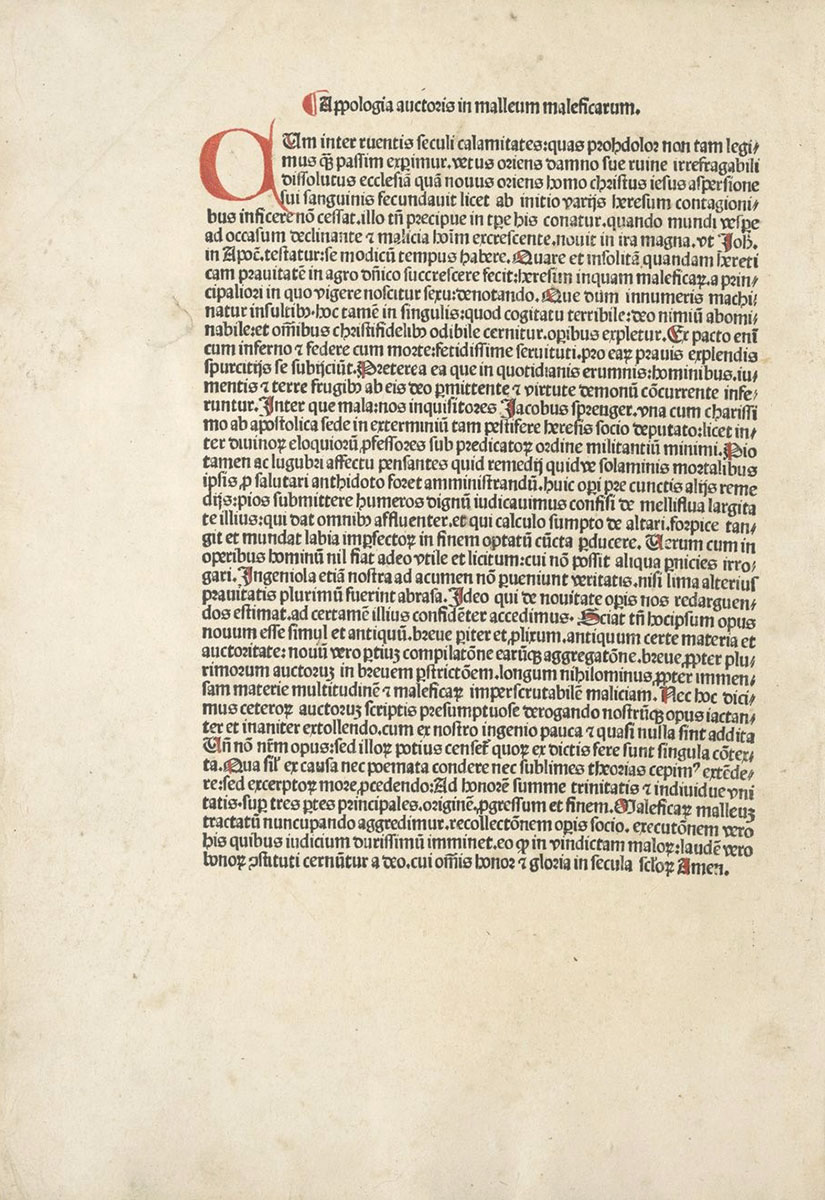 ¶Appologia auctoris in malleum maleficarum.
CUm inter ruentis seculi calamitates:quas prohdolor non tam legi/
mus qȝ passim experimur.vetus oriens damno sue ruine irrefragabili
dissolutus ecclesiā quā nouus oriens homo christus iesus aspersione
sui sanguinis fecundauit licet ab initio varijs heresum contagioni/
bus inficere nō cessat.illo tn̄ precipue in tꝑe his conatur.quando mundi vesꝑe
ad occasum declinante ⁊ malicia hoīm excrescente.nouit in ira magna.vt Joh̄.
in Apoc̄.testatur:se modicū tempus habere.Quare et insolitā quandam hereti
cam prauitatē in agro dn̄ico succrescere fecit:heresim inquam maleficaꝝ.a prin/
cipaliori in quo vigere noscitur sexu:denotando.Que dum innumeris machi/
natur insultibꝰ.hoc tamē in singulis:quod cogitatu terribile:deo nimiū abomi/
nabile:et om̄ibus christifidelibꝰ odibile cernitur.oꝑibus expletur.Ex pacto enī
cum inferno ⁊ federe cum morte:fetidissime seruituti.pro eaꝝ prauis explendis
spurcitijs se subijciūt.Preterea ea que in quotidianis erumnis:hominibus.iu/
mentis ⁊ terre frugibꝰ ab eis deo ꝑmittente ⁊ virtute demonū cōcurrente infe/
runtur.Inter que mala:nos inquisitores Jacobus sprenger.vna cum charissi
mo ab apostolica sede in exterminiū tam pestifere heresis socio deputato:licet in/
ter diuinoꝝ eloquiorū ꝓfessores sub predicatoꝝ ordine militantiū minimi.Pio
tamen ac lugubri affectu pensantes quid remedij quidve solaminis mortalibus
ipsis ꝓ salutari anthidoto foret amministrandū.huic oꝑi pre cunctis alijs reme
dijs:pios submittere humeros dignū iudicauimus confisi de melliflua largita
te illius:qui dat omnibꝰ affluenter.et qui calculo sumpto de altari.forpice tan/
git et mundat labia imꝑfectoꝝ in finem optatū cūcta ꝑducere. Uerum cum in
operibus hominū nil fiat adeo vtile et licitum:cui nō possit aliqua ꝑnicies irro/
gari.Ingeniola etiā nostra ad acumen nō ꝑueniunt veritatis.nisi lima alterius
prauitatis plurimū fuerint abrasa.Ideo qui de nouitate oꝑis nos redarguen/
dos estimat.ad certamē illius confidēter accedimus. Sciat tn̄ hocipsum opus
nouum esse simul et antiquū.breue ꝑiter et ꝓlixum.antiquum certe materia et
auctoritate:nouū vero ꝑtiuꝫ compilatōne earūqȝ aggregatōne.breue ꝓpter plu/
rimorum auctoruꝫ in breuem ꝑstrictōem.longum nihilominus ꝓpter immen/
sam materie multitudinē ⁊ maleficaꝝ imperscrutabilē maliciam.Nec hoc dici/
mus ceteroꝝ auctoruꝫ scriptis presumptuose derogando nostrūqȝ opus iactan/
ter et inaniter extollendo.cum ex nostro ingenio pauca ⁊ quasi nulla sint addita
Un̄ nō nr̄m opus:sed illoꝝ potius censet̄ quoꝝ ex dictis fere sunt singula cōtex/
ta.Qua sil̄ ex causa nec poemata condere nec sublimes theorias cepimꝰ extēde/
re:sed excerptoꝝ more ꝓcedendo:Ad honorē summe trinitatis ⁊ indiuidue vni
tatis.suꝑ tres ꝑtes principales.originē.ꝓgressum et finem.Maleficaꝝ malleuꝫ
tractatū nuncupando aggredimur.recollectōnem oꝑis socio. executōnem vero
his quibus iudicium durissimū imminet.eo ꝙ in vindictam maloꝝ:laudē vero
bonoꝝ ꝯstituti cernūtur a deo.cui om̄is honor ⁊ gloria in secula scl̄oꝝ Amen.